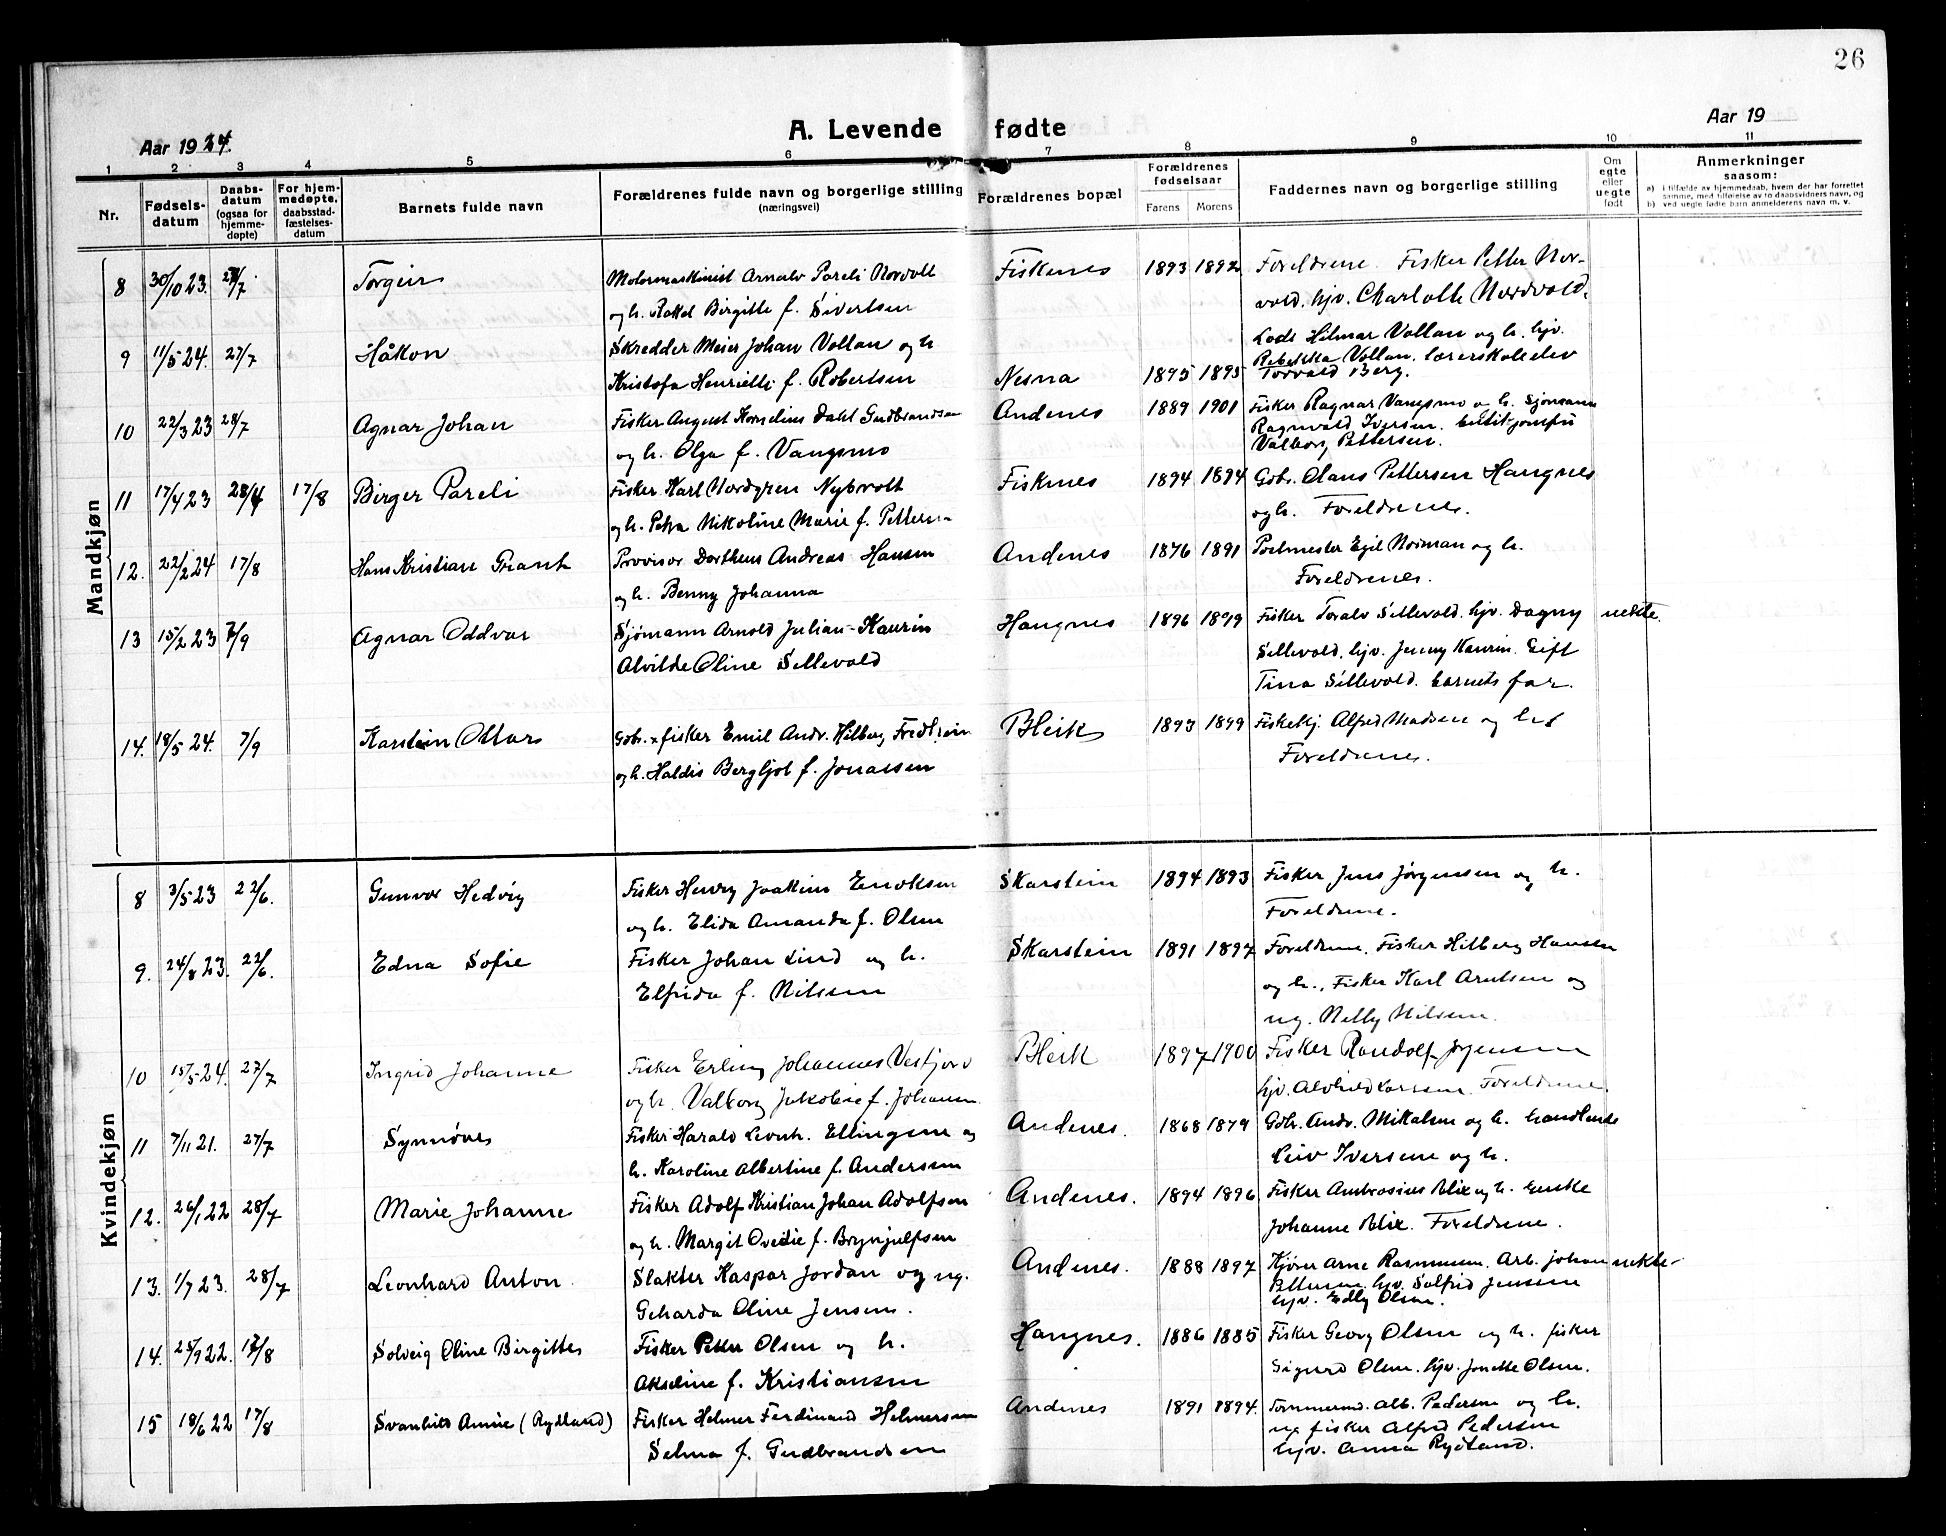 26
Aar 1924.
A. Levende fødte
Aar 19
1 2 3 4 5 6 7 8 9 10 11
Nr.
Fødsels-
datum
Daabs-
datum
(ogsaa for
hjemme-
døpte)
For hjem-
medøpte,
daabsstad-
fæstelses-
datum
Barnets fulde navn
Forældrenes fulde navn og borgerlige stilling
(næringsvei)
Forældrenes bopæl
Forældrenes
fødselsaar
Farens Morens
Faddernes navn og borgerlige stilling
Om
egte
eller
uegte
født
Anmerkninger
saasom:
a) i tilfælde av hjemmedaab, hvem der har forrettet
samme, med tilføielse av to daabsvidners navn, og
b) ved uegte fødte barn anmelderens navn m. v.
Mandkjøn
8 30/10 23. /7 Torgeir Motormaskinist Arnalv Pareli Nordvoll Fiskenes 1893 1892 Foreldrene. Fisker Petter Nor-
og h. Rakel Birgitte f. Sivertsen vold. hjv. Charlotte Nordvold.
9 11/5 24. 27/7 Håkon Skredder Meier Johan Vollan og h Lods Hilmar Vollan og h. hjv.
Kristofa Henriette f. Robertsen Nesna 1895 1895 Rebekka Vollan. lærerskoleelev
Torvald Berg.
10 22/3 23 28/7 Agnar Johan Fisker August Kornelius Dahl Gudbrandsen Andenes 1889 1901 Fisker Ragnar Vangsmo o h. Sjømann
og h. Olga f. Vangsmo Ragnvald Iversen. butikjomfru
Valborg Pettersen.
11 17/4 23 28/4 17/8 Birger Pareli Fisker Karl Nordgren Nybvolt Fisknes 1894 1894 Gbr. Olaus Pettersen Haugnes
og h. Petra Nikoline Marie f. Petters- og h. Foreldrenes.
12. 22/2 24 17/8 Hans Kristian Grank Provisor Dortheus Andreas Hansen Andenes 1876 1891 Postmester Egil Norman og h.
og h. Benny Johanna Foreldrenes.
13 15/2 23 7/9 Agnar Oddvar Sjømann Arnold Julian Kaurin Haugnes 1896 1899 Fisker Toralv Sellevold. hjv. Dagny uekte.
Alvilde Oline Sellevold Sellevold. hjv. Jenny Kaurin. Gift
Tina Sellevold. barnets far.
14. 18/5 24. 7/9 Karstein Ottar Gbr. x fisker Emil Andr. Hilberg Fredhjem Bleik 1893 1899 Fiskehj. Alfred Madsen og h.
og h. Haldis Bergljot f. Jonassen Foreldrenes.
Kvindekjøn
8 3/5 23 22/6. Gunvor Hedvig Fisker Henry Joakim Enoksen Skarstein 1894 1893 Fisker Jens Jørgensen og h.
og h. Elida Amanda f. Olsen Foreldrene.
9. 24/8 23. 22/6. Edna Sofie Fisker Johan Lind og h. Skarstein 1891 1897 Foreldrene. Fisker Hilberg Hansen
Elfrida f. Nilsen og h., Fisker Karl Arntsen og
ug. Nelly Nilsen.
10 15/5 24. 27/7 Ingrid Johanne Fisker Erling Johannes Vestfjord Bleik 1897 1900 Fisker Randolf Jørgensen
og h. Valborg Jakobine f. Johansen hjv. Alvhild Larssen. Foreldrene.
11 7/11 21. 27/7 Synnøve Fisker Harald Leonh. Ellingsen og Andenes. 1868 1879 Gbr. Andr. Mikalsen og h. handlende
h. Karoline Albertine f. Andersen Leiv Iversen og h.
12. 26/1 22 28/7 Marie Johanne Fisker Adolf Kristian Johan Adolfsen Andenes. 1894 1896 Fisker Ambrosius Blix og h. Enke
og h. Margit Ovedie f. Brynjulfsen Johanne Blix. Foreldrene.
13. 1/7 23. 28/7 Leonhard Anton Slakter Kaspar Jordan og ug. Andenes. 1888 1897 Kjører Arne Rasmussen. Arb. Johan uekte
Geharda Oline Jensen. Pettersen. hjv. Solfrid Jensen
hjv. Edly Olsen.
14. 25/9 22. 17/8 Solveig Oline Birgitte Fisker Petter Olsen og h. Haugnes. 1886 1885 Fisker Georg Olsen og h. fisker
Akseline f. Kristiansen Sigurd Olsen. hjv. Jonette Olsen.
15 18/6 22 17/8 Svanhild Annie (Rydland) Fisker Helmer Ferdinand Helmersen Andenes 1891 1894. Tømmermd. Alb. Pedersen og h.
Selma f. Gudbrandsen ug fisker Alfred Pedersen
hjv. Anna Rydland.